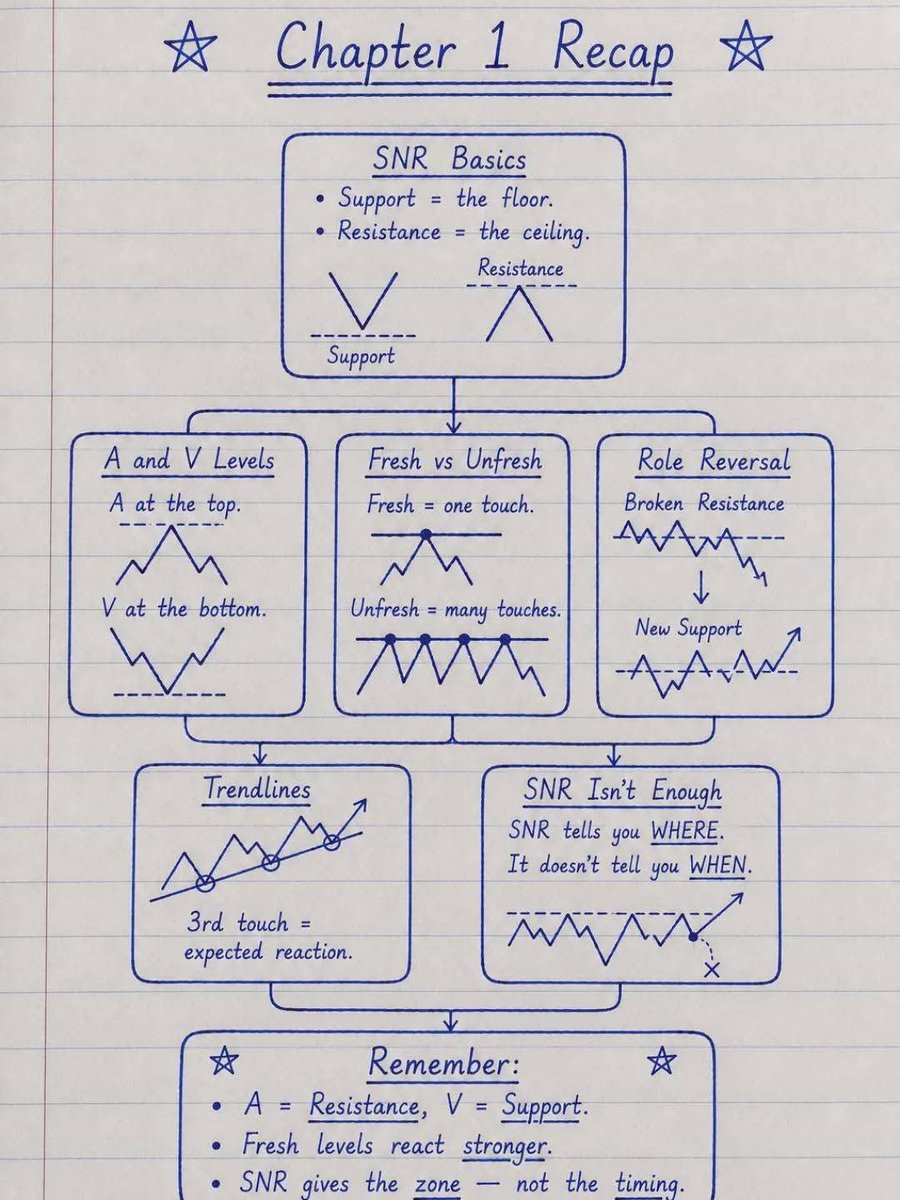 Chapter 1 Recap
SNR Basics
• Support = the floor.
• Resistance = the ceiling.
Resistance
Support
A and V Levels
A at the top.
V at the bottom.
Fresh vs Unfresh
Fresh = one touch.
Unfresh = many touches.
Role Reversal
Broken Resistance
New Support
Trendlines
3rd touch =
expected reaction.
SNR Isn't Enough
SNR tells you WHERE.
It doesn't tell you WHEN.
Remember:
• A = Resistance, V = Support.
• Fresh levels react stronger.
• SNR gives the zone — not the timing.